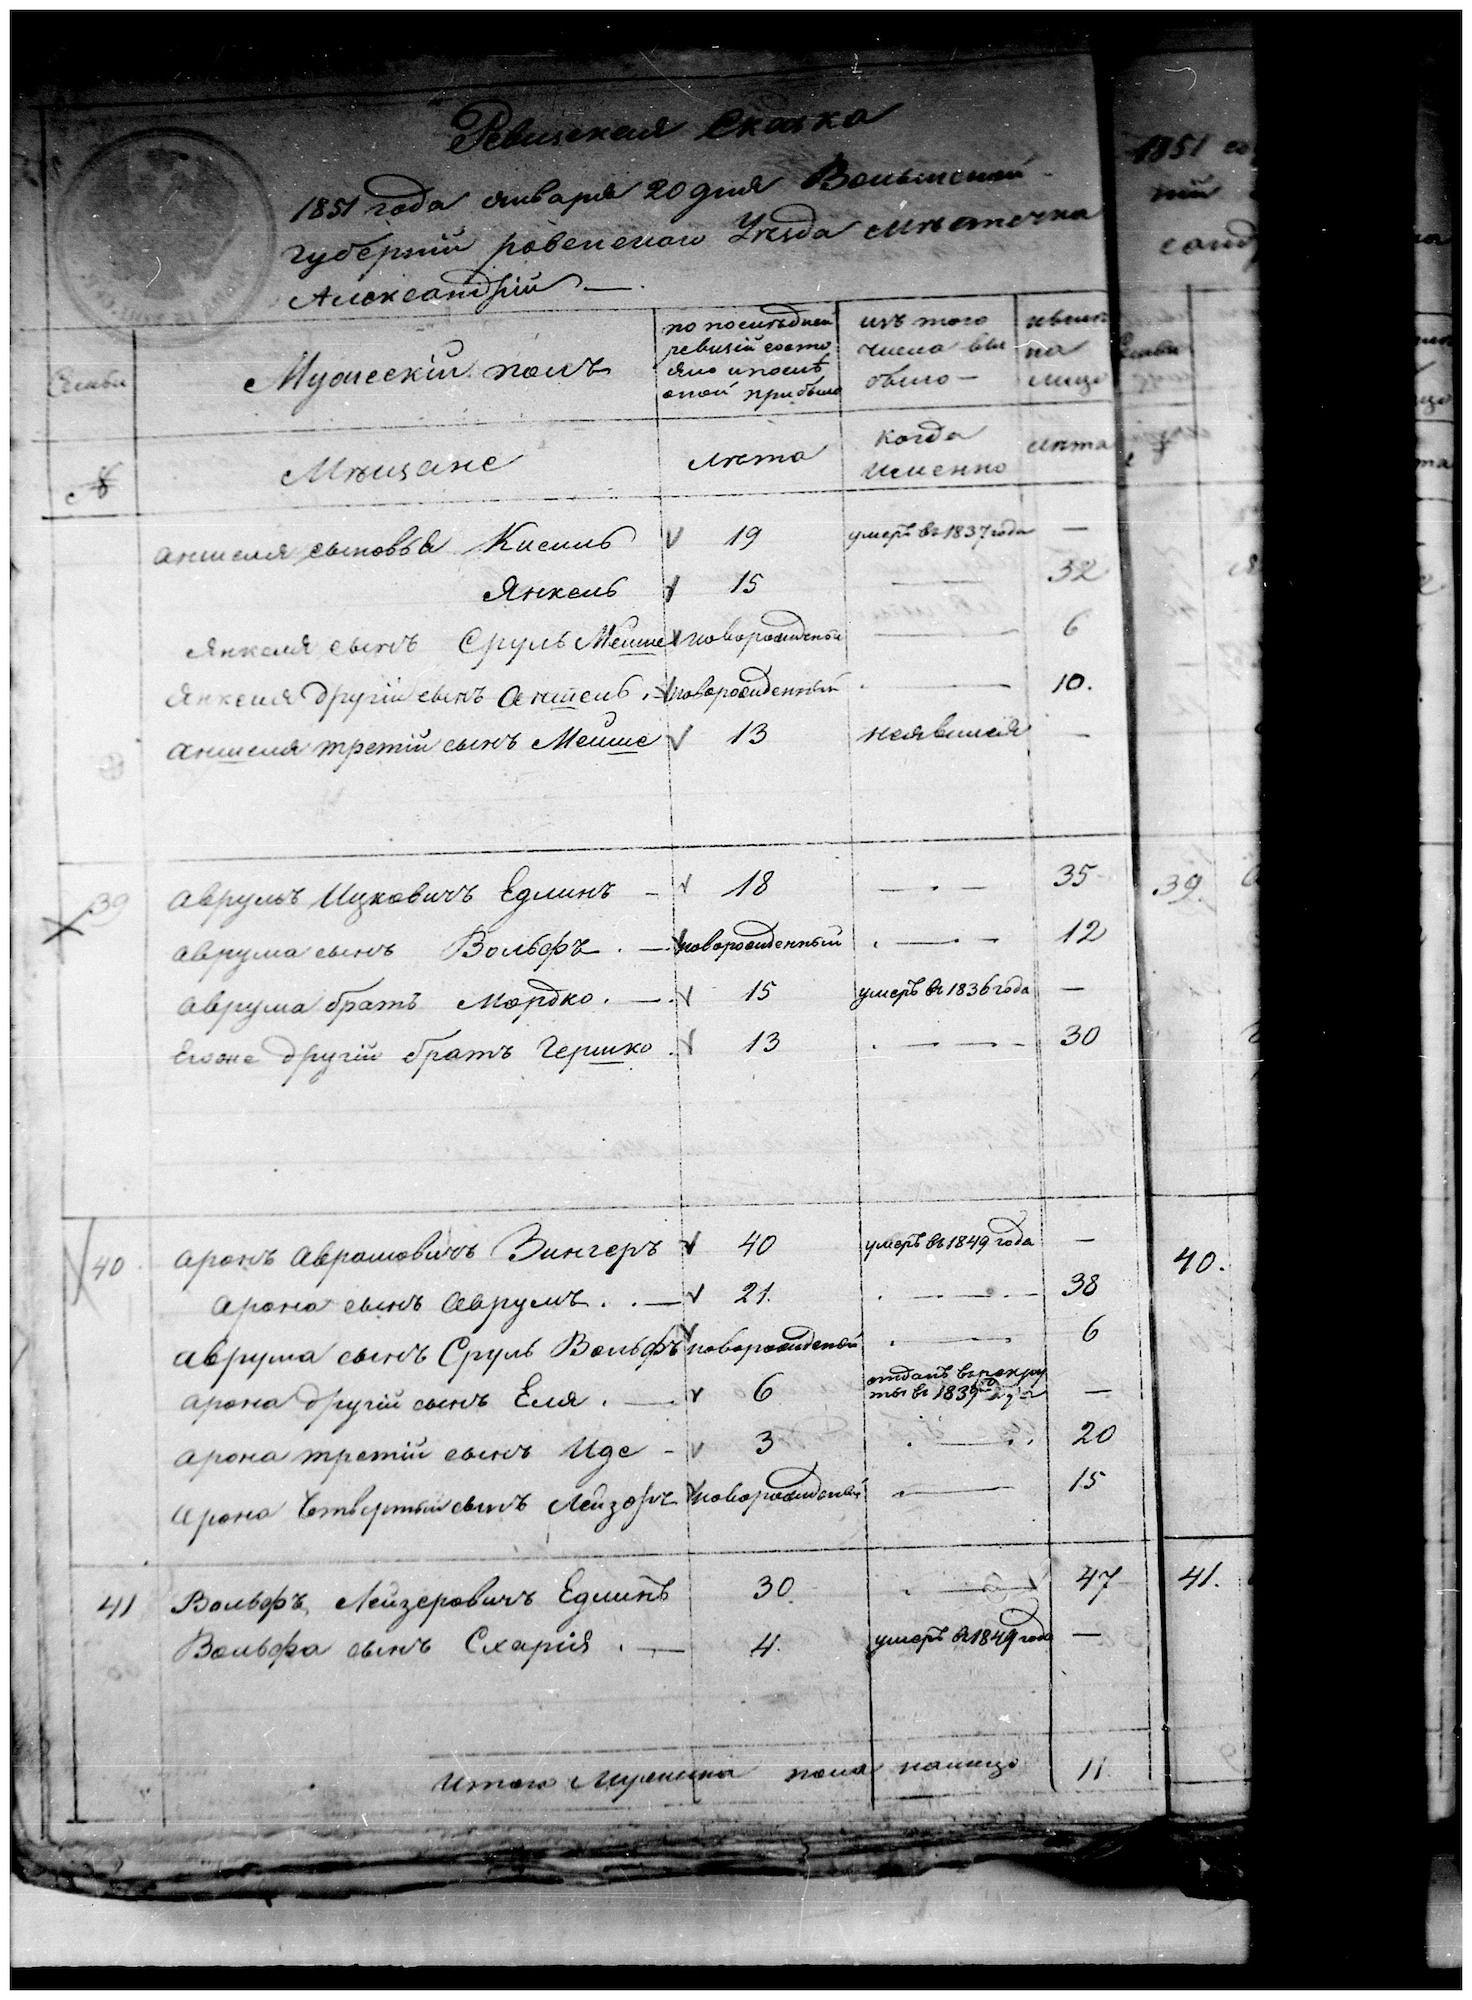 Ревизская Сказка
1851 года января 20 дня Волынской
губерніи ровенскаго Уезда Мѣстечка
Александріи
1851
Семьи
Мужескій полъ
по последней
ревизіи состо
яло и послѣ
оной прибыло
изъ того
числа вы
было
на
лицо
№
Мѣщане
лѣта
когда
именно
лѣта
аншеля сыновья Кисиль 19 умеръ въ 1837 года —
Янкель 15 — 32
Янкеля сынъ Сруль Мейше новорожденой — 6
Янкеля другій сынъ Аншель новорожденный — 10.
аншеля третій сынъ Мейше 13 неявился —
39 аврумъ Ицковичъ Едлинъ — 18 — 35 39.
аврума сынъ Вольфъ новорожденный — 12
аврума братъ Мордко 15 умеръ въ 1836 года —
Егоже другій братъ Гершко 13 — 30
40 аронъ Аврамовичъ Зингеръ 40 умеръ въ 1849 года — 40.
арона сынъ Аврумъ 21. — 38
аврума сынъ Сруль Вольфъ новорожденый — 6
арона другій сынъ Еля 6 отданъ въ рекру
ты въ 1839 —
арона третій сынъ Иде 3 — 20
арона Четвертый сынъ Лейзоръ новорожденый — 15
41 Вольфъ Лейзеровичъ Едлинъ 30. — 47 41.
Вольфа сынъ Схарія 4. умеръ въ 1849 года —
Итого Мужеска пола налицо 11